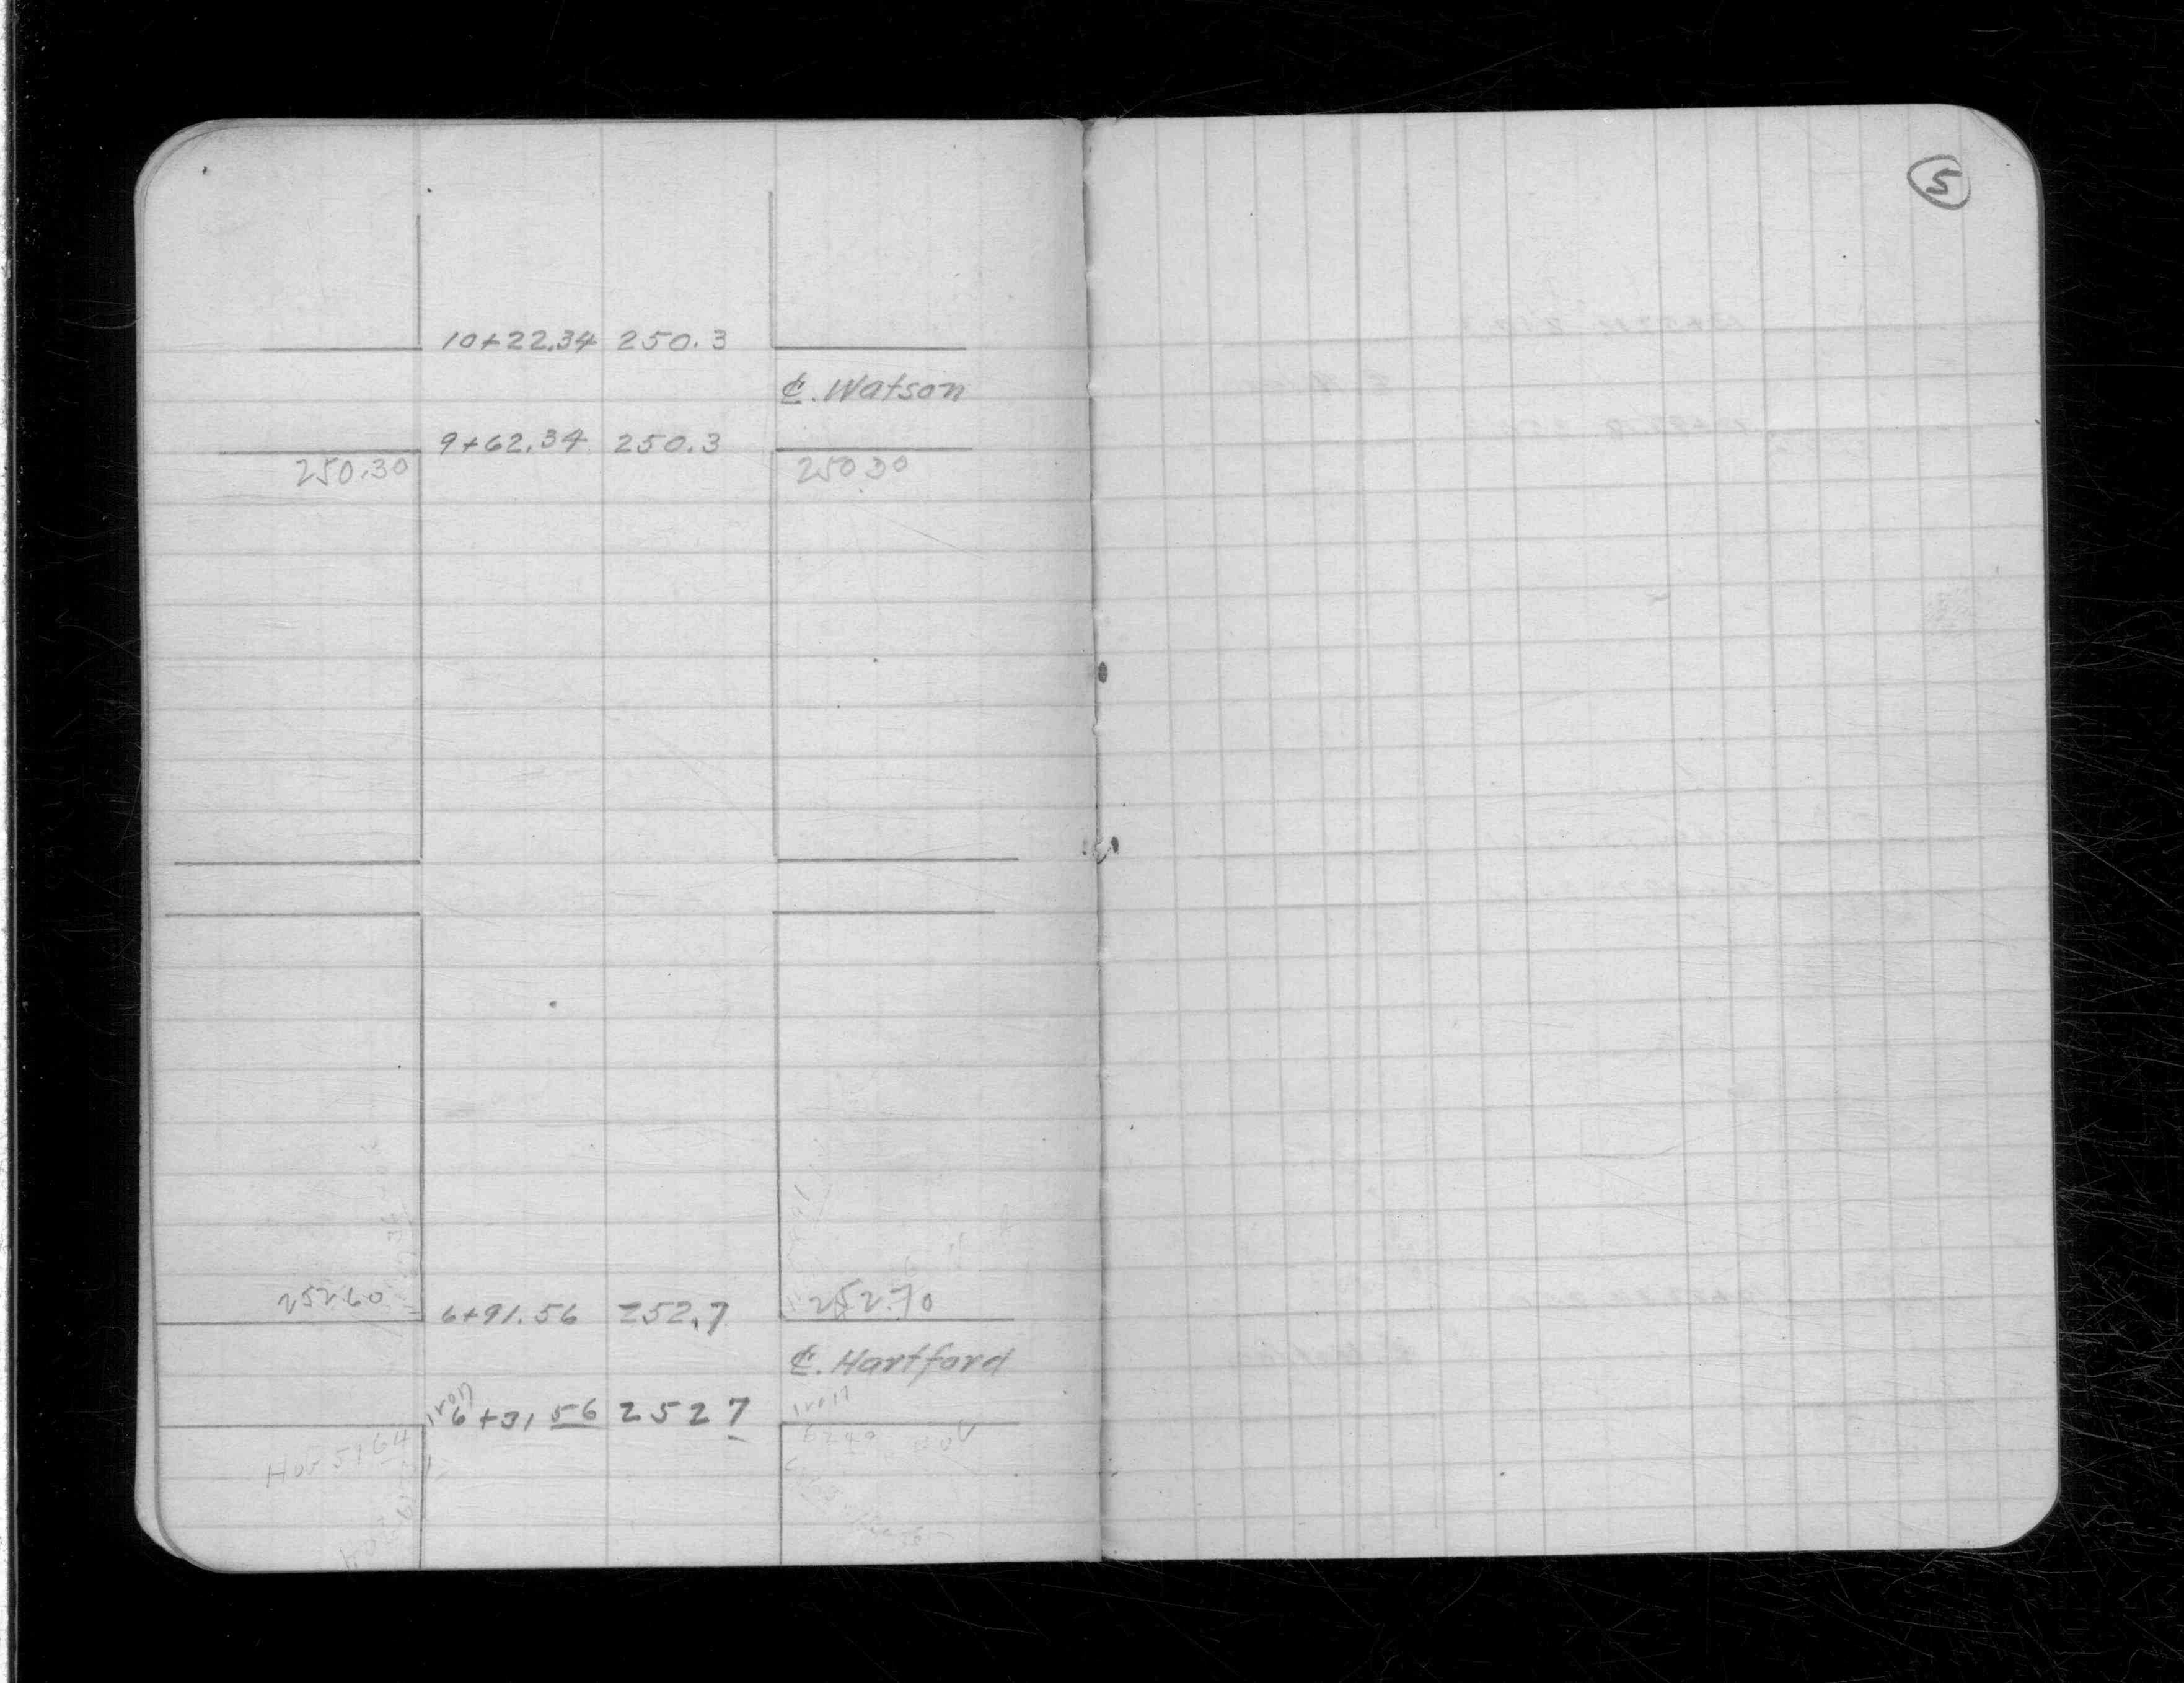 5
10+22.34 250.3
℄. Watson
9+62.34 250.3
250.30 250 30
252.60 6+91.56 252.7 252.70
℄. Hartford
Iron 6+31 56 252 7 Iron